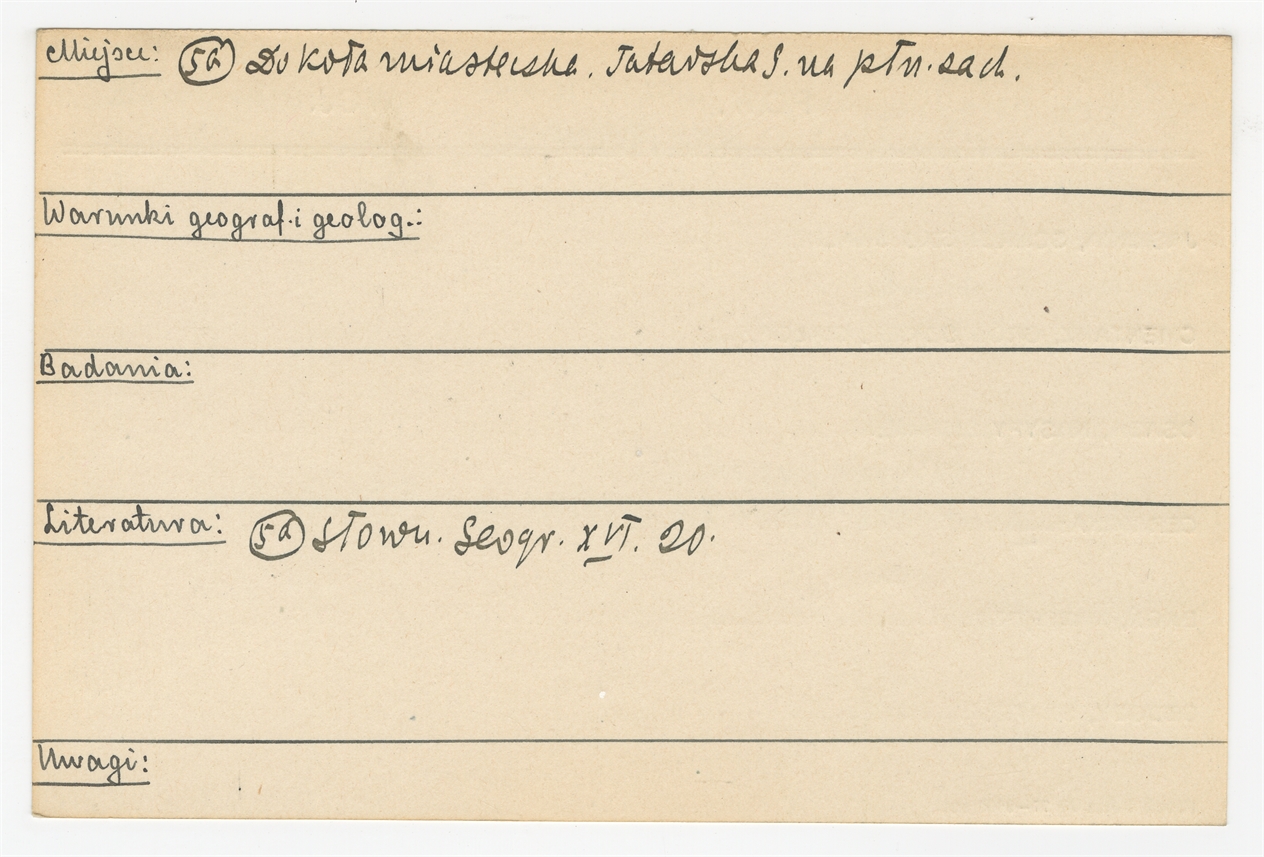 Miejsce: 5a Dokoła miasteczka. Tatarska G. na płn. zach.
Warunki geograf. i geolog.:
Badania:
Literatura: 5a Słown. Geogr. XVI. 20.
Uwagi: